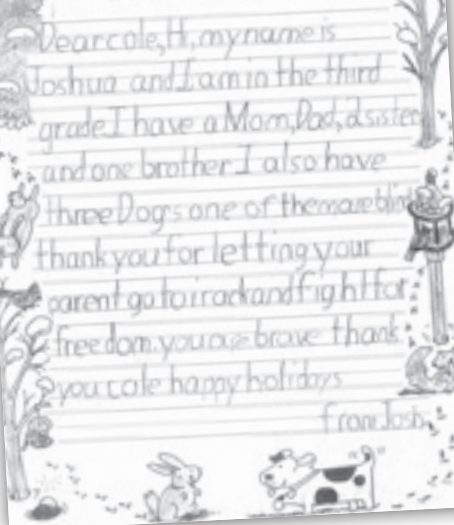 Dear cole, Hi, my name is
Joshua and I am in the third
grade I have a Mom, Dad, a sister
and one brother I also have
three Dogs one of them are blind
thank you for letting your
parent go to irack and fight for
freedom. you are brave thank
you cole happy holidays
from Josh